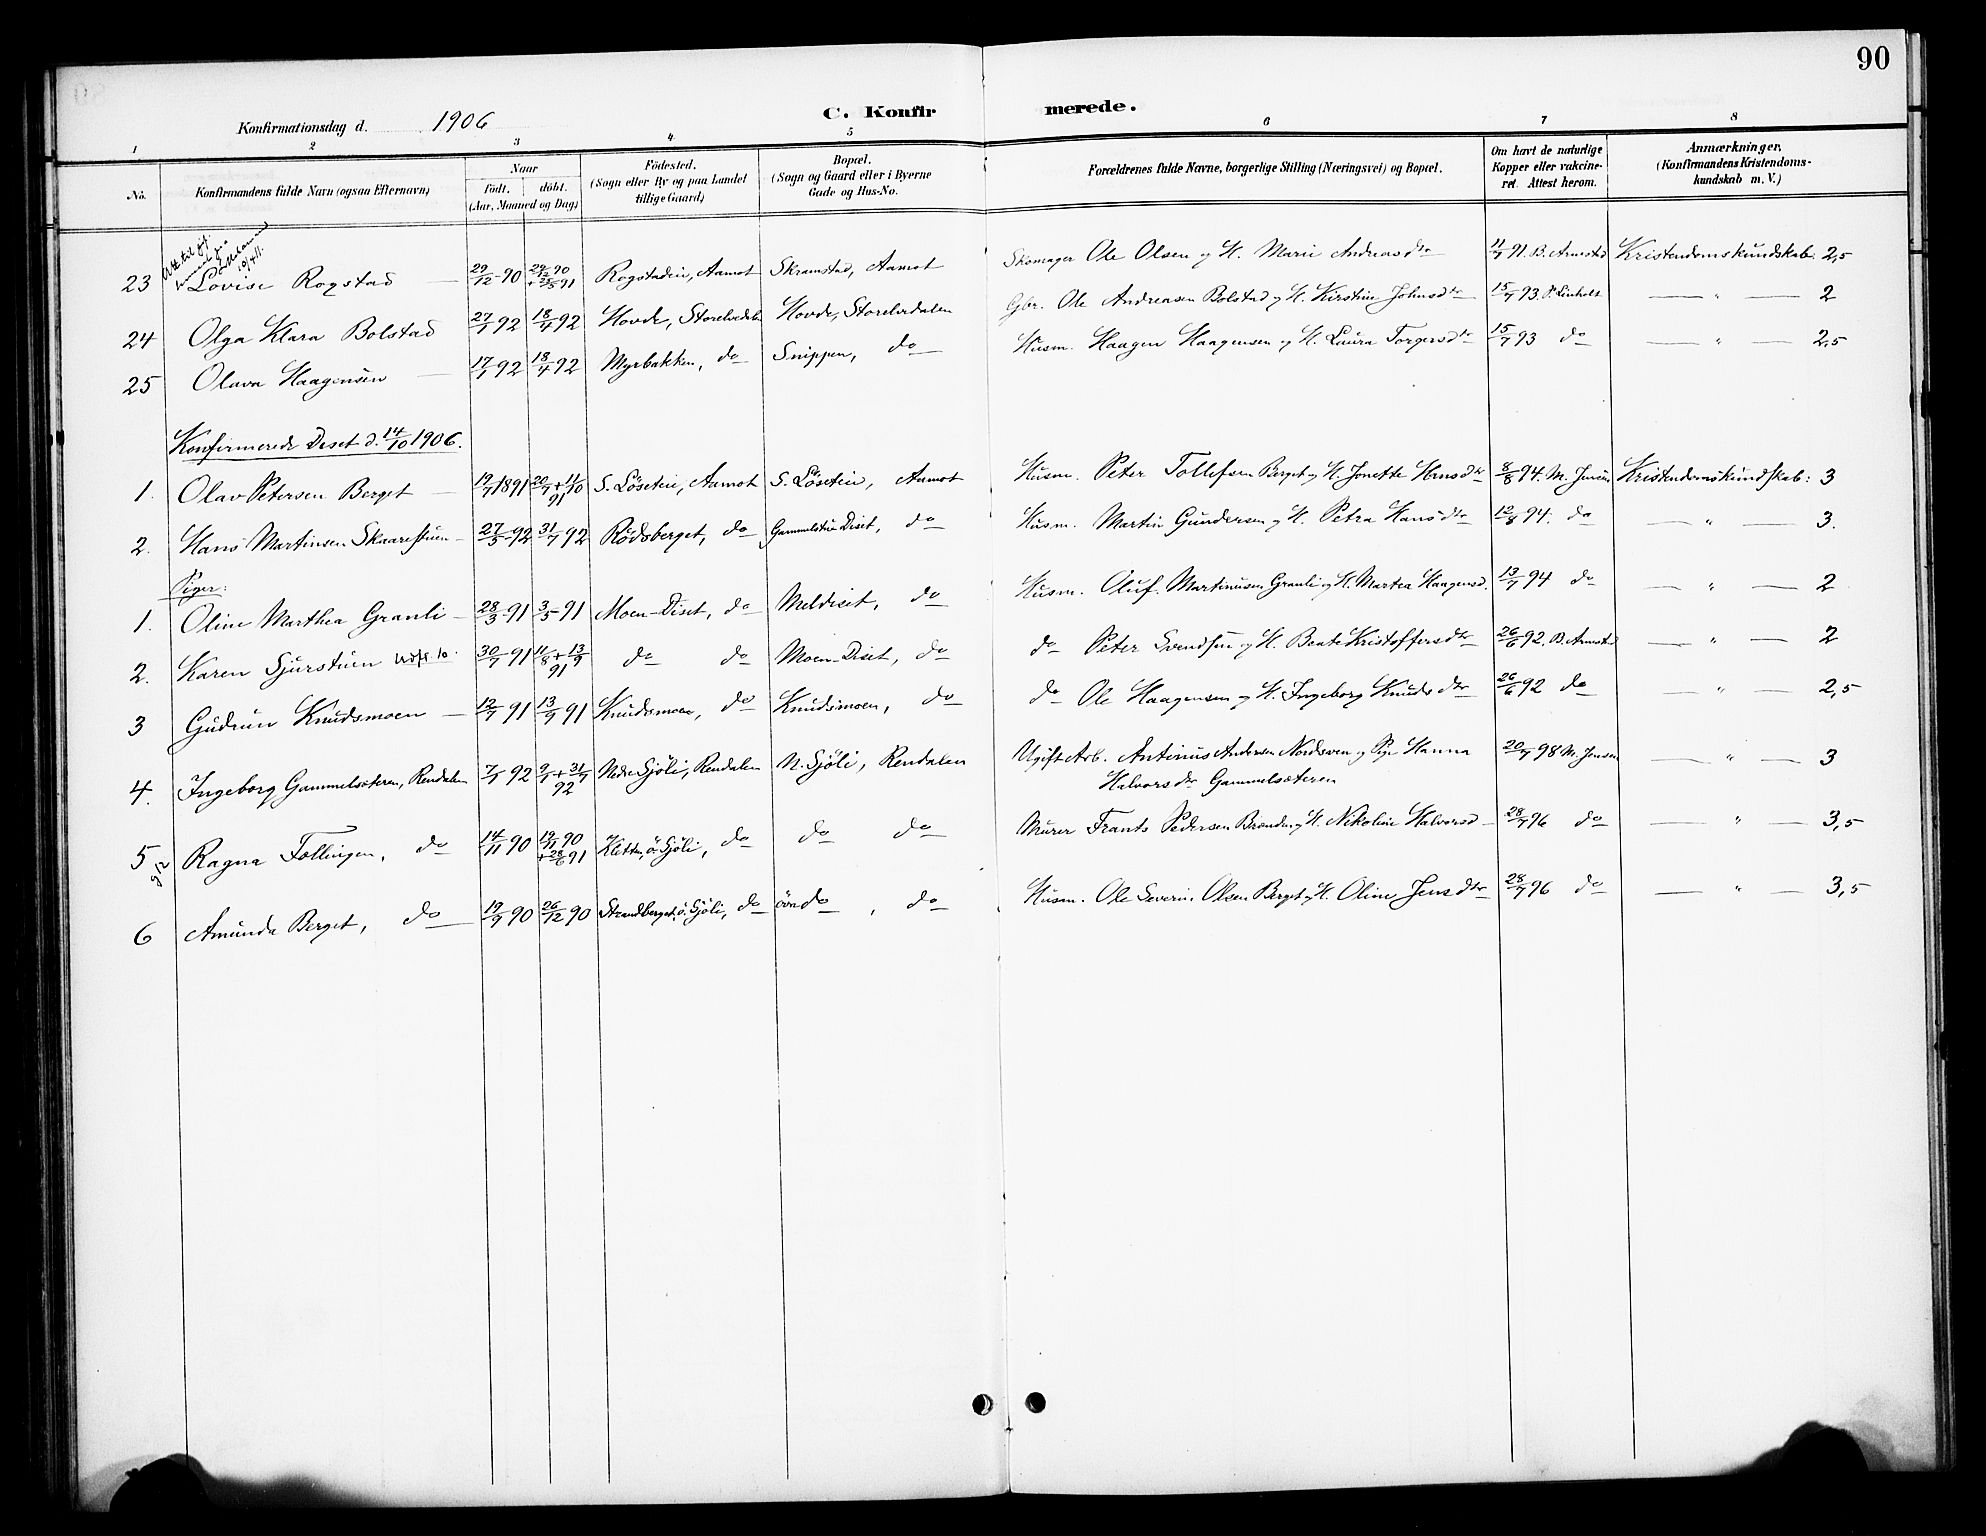 90
C. Konfirmerede.
Konfirmationsdag d. 1906
1 2 3 4 5 6 7 8
No.
Konfirmandens fulde Navn (ogsaa Efternavn)
Naar
født. døbt.
(Aar, Maaned og Dag)
Fødested.
(Sogn eller By og paa Landet
tillige Gaard)
Bopæl.
(Sogn og Gaard eller i Byerne
Gade og Hus-No.
Forældrenes fulde Navne, borgerlige Stilling (Næringsvei) og Bopæl.
Om havt de naturlige
Kopper eller vakcine-
ret. Attest herom.
Anmærkninger.
(Konfirmandens Kristendoms-
kundskab m. V.)
23 Lovise Rogstad 29/12-90 29/12 90 + 25/5 91 Rogstadeie, Aamot Skramstad, Aamot Skomager Ole Olsen og H. Marie Andreasdtr 11/7 91. B. Armstad Kristendomskundskab: 2,5
24 Olga Klara Bolstad 27/1 92 18/4 92 Hovde, Storelvedalen Hovde, Storelvedalen Gbr. Ole Andreasen Bolstad og H. Kirstine Johnsdtr 15/7 93. P. Linholt — " — 2
25 Olava Haagensen 17/1 92 18/4 92 Myrbakken, do Snippen, do Husm. Haagen Haagensen og H. Laura Torgersdtr 15/7 93 do — " — 2,5
Konfirmerede Deset d. 14/10 1906.
1. Olav Petersen Berget 19/7 1891 20/7 + 11/10 91 S. Løseteie, Aamot S. Løseteie, Aamot Husm. Peter Tollefsen Berget og H. Jonette Hansdtr 8/8 94. M. Jensen Kristendomskundskab: 3
2. Hans Martinsen Skaarestuen 27/5-92 31/7 92 Rødsberget, do Gammelstu Diset, do Husm. Martin Gundersen og H. Petra Hansdtr 12/8 94. do — " — 3.
Piger:
1. Oline Marthea Granli 28/3-91 3/5-91 Moen-Diset, do Meldiset, do Husm. Oluf Martinusen Granli og H. Martea Haagensd. 13/7 94 do — " — 2
2. Karen Sjurstuen 30/7 91 11/8 + 13/9 91 do do Moen-Diset, do do Peter Svendsen og H. Beate Kristoffersdtr 26/6 92. B. Armstad — " — 2
3 Gudrun Knudsmoen 12/7 91 13/9 91 Knudsmoen, do Knudsmoen, do do Ole Haagensen og H. Ingeborg Knudsdtr 26/6 92 do — " — 2,5
4. Ingeborg Gammelsæteren, Rendalen 7/1 92 9/1 + 31/7 92 Nedre Sjøli, Rendalen N. Sjøli, Rendalen Ugift Arb. Antinius Andersen Nordsveen og Pige Hanna 20/7 98 M. Jensen — " — 3
Halvorsdtr Gammelsæteren
5 Ragna Follingen, do 14/11 90 19/11 90 + 28/6 91 Kletten, ö. Sjøli, do do do Murer Frants Pedersen Brænden og H. Nikoline Halvorsd 28/7 96 do — " — 3,5
6 Amunda Berget, do 19/9 90 26/12 90 Strandberget, ö. Sjøli, do övre do, do Husm. Ole Severin Olsen Berget og H. Oline Jensdtr 28/7 96 do — " — 3,5